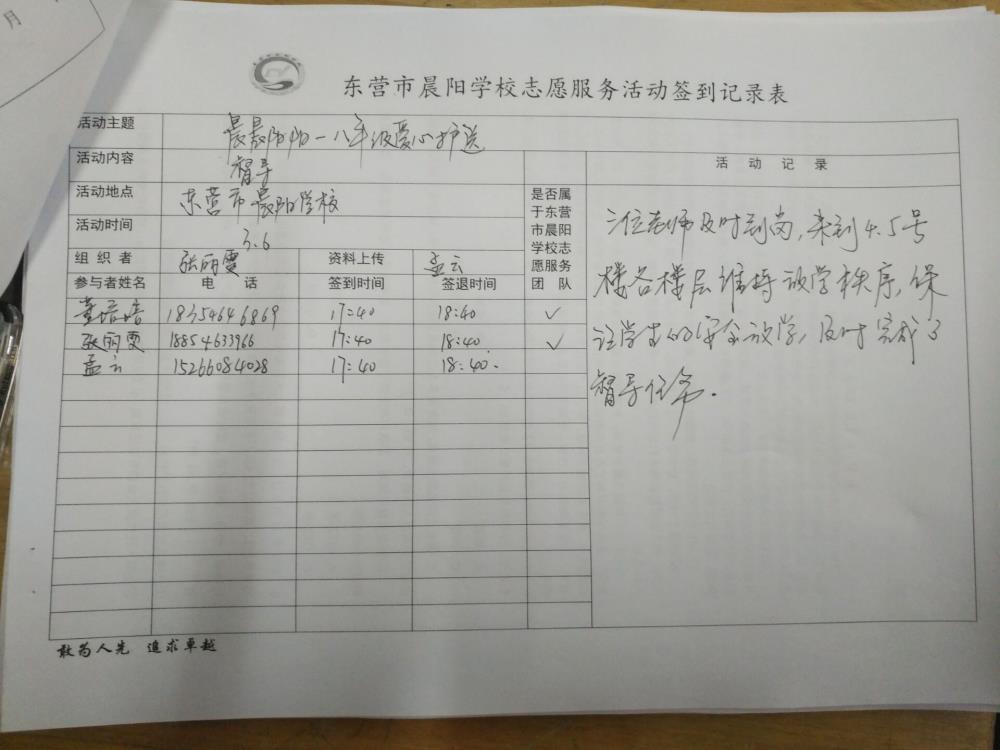 月
东营市晨阳学校志愿服务活动签到记录表
活动主题 晨晨阳阳一八年级爱心护送
活动内容 督导
活动地点 东营市晨阳学校
活动时间 3.6
组织者 张丽雯 资料上传 孟云
参与者姓名 电话 签到时间 签退时间
是否属
于东营
市晨阳
学校志
愿服务
团队
董培培 18354646869 17:40 18:40 ✓
张丽雯 18854633966 17:40 18:40 ✓
孟云 15266084028 17:40 18:40.
活动记录
三位老师及时到岗,来到4.5号
楼各楼层维持放学秩序,保
证学生的安全放学,及时完成了
督导任务.
敢为人先 追求卓越